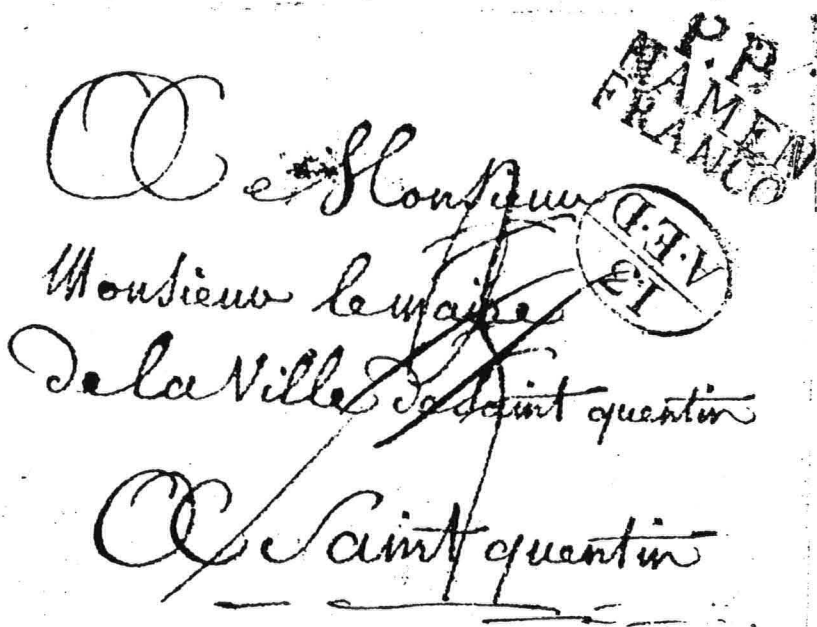 P.P.
NAMEN
FRANCO
A Monsieur
A.E.D
13
Monsieur lemaire
De la Ville De Saint quentin
A Saint quentin